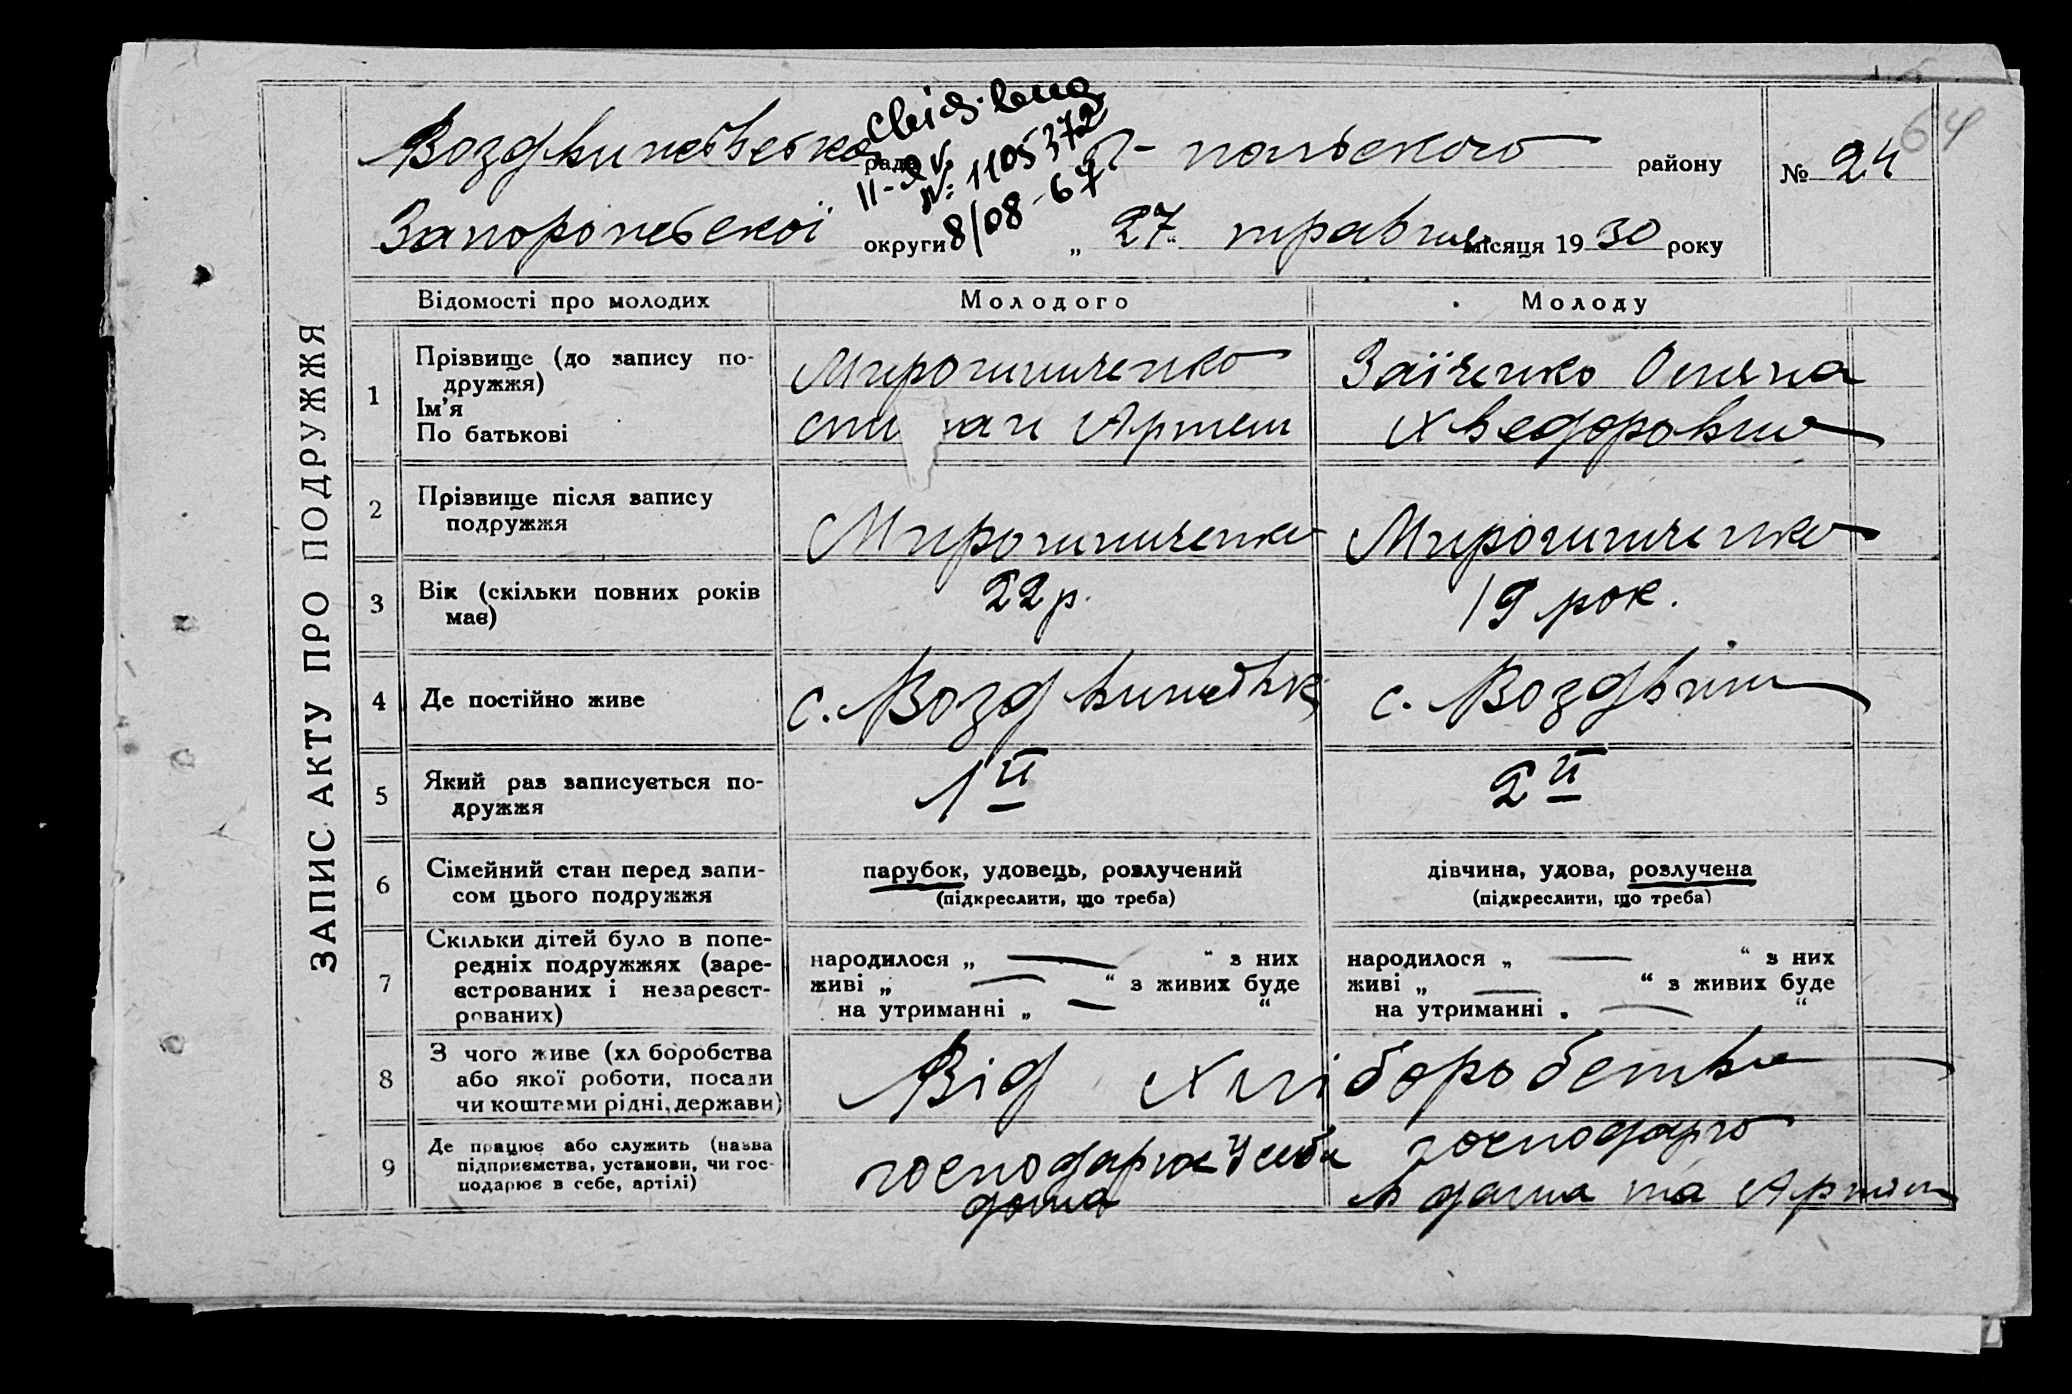 64
Воздвижевська рада Г-польського району № 24
свід. вид.
II-ЯУ
№ 1105372
8/08-67
Запоріжської округи „ 27 “ травня місяця 1930 року
ЗАПИС АКТУ ПРО ПОДРУЖЖЯ
Відомості про молодих Молодого Молоду
1 Прізвище (до запису по-
дружжя)
Ім'я
По батькові
Мирошниченко
Артем
Заїченко
Хведоровна
2 Прізвище після запису
подружжя
Мирошниченко Мирошниченко
3 Вік (скільки повних років
має)
22 р. 19 рок.
4 Де постійно живе
с. Воздвижевк с. Воздвиж
5 Який раз записується по-
дружжя
1й 2й
6 Сімейний стан перед запи-
сом цього подружжя
парубок, удовець, розлучений
(підкреслити, що треба)
дівчина, удова, розлучена
(підкреслити, що треба)
7 Скільки дітей було в попе-
редніх подружжях (заре-
єстрованих і незареєст-
рованих)
народилося „ — “ з них
живі „ — “ з живих буде
на утриманні „ — “
народилося „ — “ з них
живі „ — “ з живих буде
на утриманні „ — “
8 З чого живе (хліборобства
або якої роботи, посади
чи коштами рідні, держави)
Від хліборобства
9 Де працює або служить (назва
підприємства, установи, чи гос-
подарює в себе, артілі)
господарює у себе
дома
господарю
в дома та